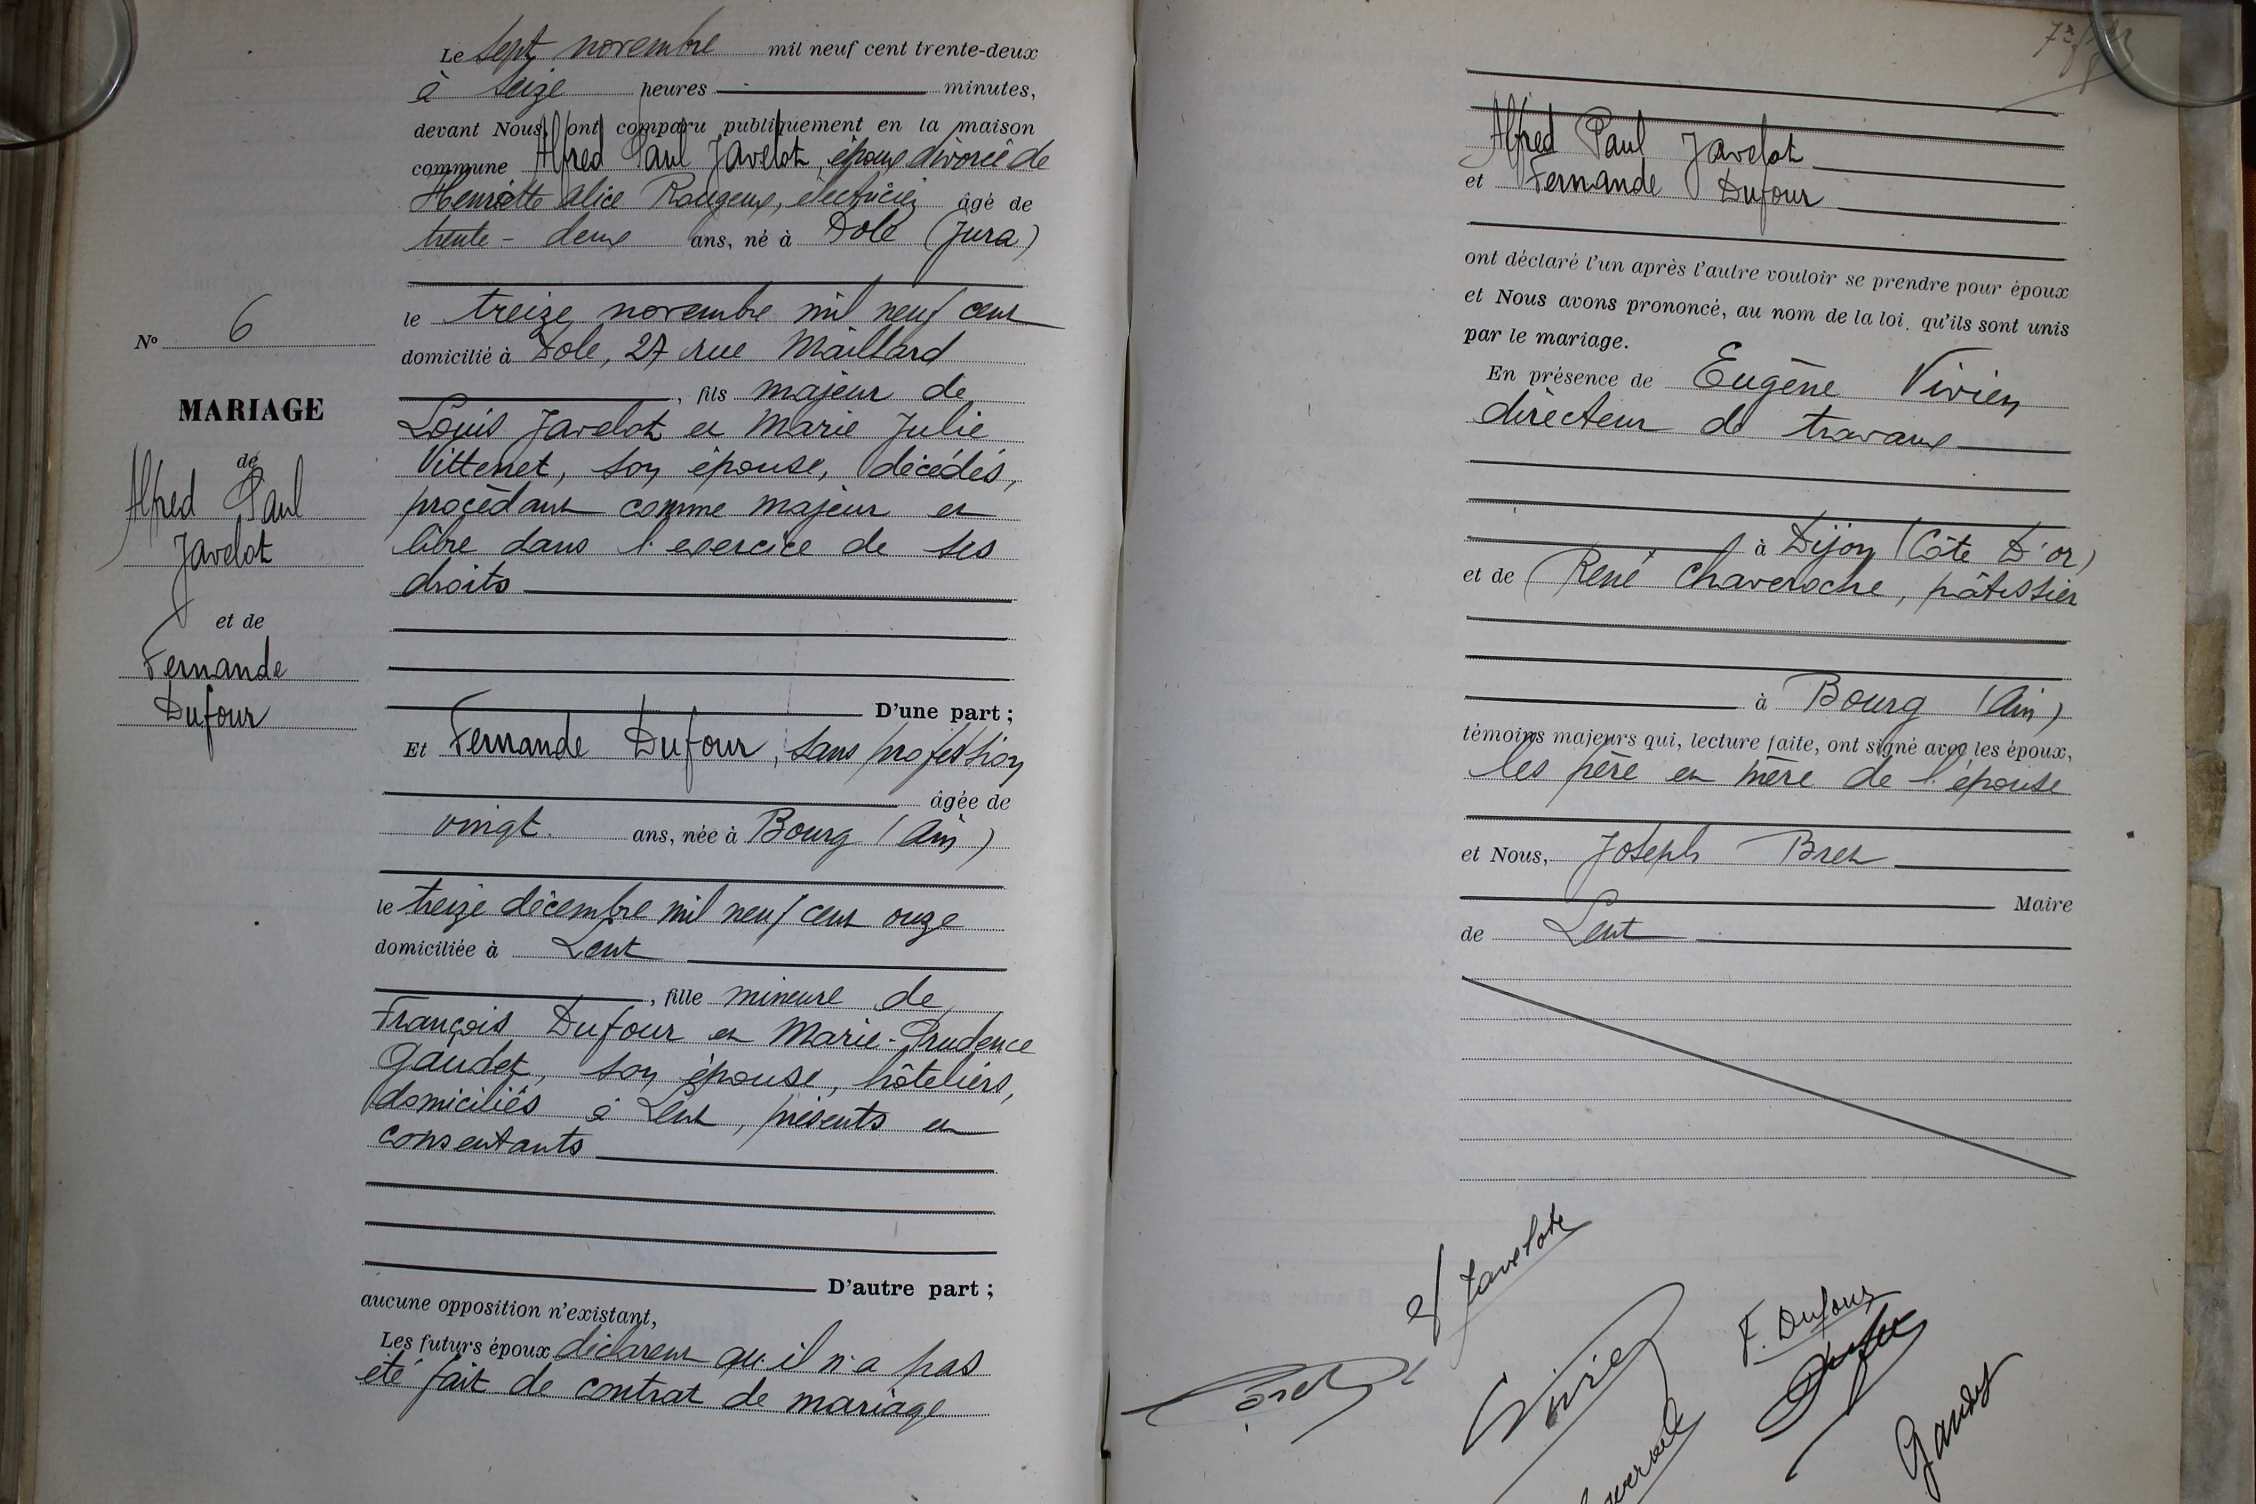 Le sept novembre mil neuf cent trente-deux
à seize heures minutes,
devant Nous, ont comparu publiquement en la maison
commune Alfred Paul Javelot, époux divorcé de
Henriette Alice Rougeux, électricien âgé de
trente-deux ans, né à Dole (Jura)
le treize novembre mil neuf cent
domicilié à Dole, 27 rue Maillard
, fils majeur de
Louis Javelot et Marie Julie
Vittenet, son épouse, décédés,
procédant comme majeur et
libre dans l'exercice de ses
droits
D'une part ;
Et Fernande Dufour, sans profession
âgée de
vingt ans, née à Bourg (Ain)
le treize décembre mil neuf cent onze
domiciliée à Lent
, fille mineure de
François Dufour et Marie-Prudence
Gaudet, son épouse, hôteliers,
domiciliés à Lent, présents et
consentants
D'autre part ;
aucune opposition n'existant,
Les futurs époux déclarent qu'il n'a pas
été fait de contrat de mariage
No 6
MARIAGE
de
Alfred Paul
Javelot
et de
Fernande
Dufour
Alfred Paul Javelot
et Fernande Dufour
ont déclaré l'un après l'autre vouloir se prendre pour époux
et Nous avons prononcé, au nom de la loi, qu'ils sont unis
par le mariage.
En présence de Eugène Vivien
directeur de travaux
à Dijon (Côte D'or)
et de René Chaveroche, pâtissier
à Bourg (Ain)
témoins majeurs qui, lecture faite, ont signé avec les époux,
les père et mère de l'épouse
et Nous, Joseph Bret
Maire
de Lent
Javelot
F. Dufour
Bret
Vivien
Gaudet